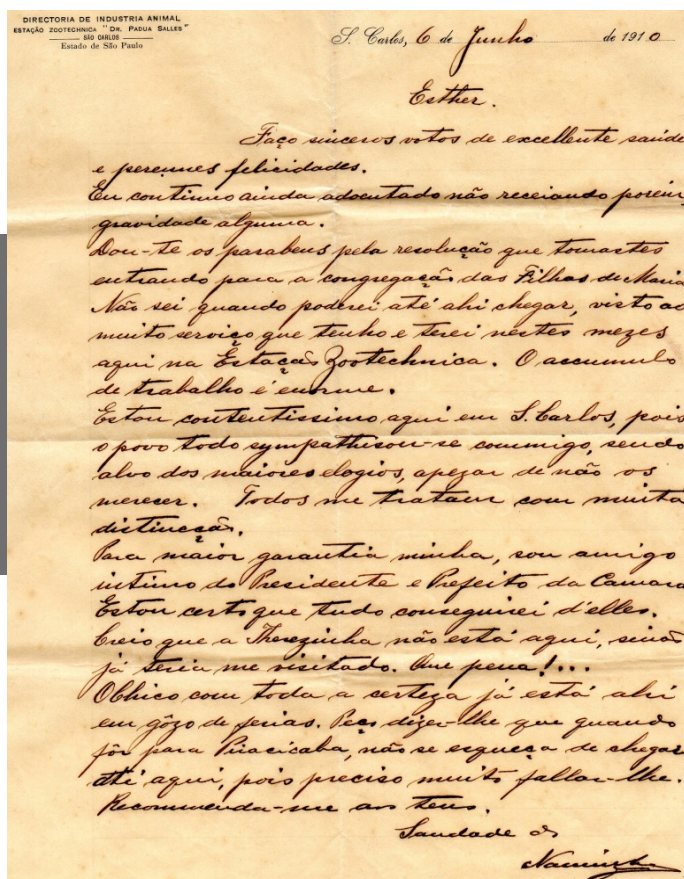 DIRECTORIA DE INDUSTRIA ANIMAL
ESTAÇÃO ZOOTECHNICA "DR. PADUA SALLES"
SÃO CARLOS
Estado de São Paulo
S. Carlos, 6 de Junho de 1910
Esther.
Faço sinceros votos de excellente saude
e perennes felicidades.
Eu continuo ainda adoentado não receiando porem,
gravidade alguma.
Dou-te os parabens pela resolução que tomastes
entrando para a congregação das Filhas de Maria
Não sei quando poderei até ahi chegar, visto ao
muito serviço que tenho e terei nestes mezes
aqui na Estação Zootechnica. O accumulo
de trabalho é enorme.
Estou contentissimo aqui em S. Carlos, pois
o povo todo sympathisou-se commigo, sendo
alvo dos maiores elogios, apezar de não os
merecer. Todos me tratam com muita
distincção.
Para maior garantia minha, sou amigo
intimo do Presidente e Prefeito da Camara
Estou certo que tudo conseguirei d'elles.
Creio que a Therezinha não está aqui, sinão
já teria me visitado. Que pena!...
O Chico com toda a certeza já está ahi
em gôzo de ferias. Peço dizer-lhe que quando
fôr para Piracicaba, não se esqueça de chegar
até aqui, pois preciso muito fallar-lhe.
Recommenda-me aos teus.
Saudade do